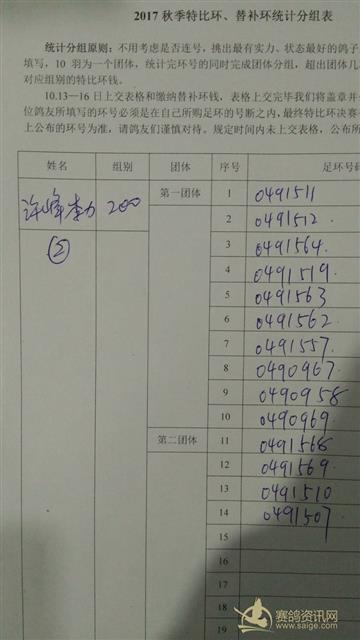 2017 秋季特比环、替补环统计分组表
统计分组原则：不用考虑是否连号，挑出最有实力、状态最好的鸽子
填写，10 羽为一个团体，统计完环号的同时完成团体分组，超出团体几
对应组别的特比环钱。
10.13—16 日上交表格和缴纳替补环钱，表格上交完毕我们将盖章并
位鸽友所填写的环号必须是在自己所购足环的号断之内，最终特比环决赛
上公布的环号为准，请鸽友们谨慎对待。规定时间内未上交表格，公布所
姓名 组别 团体 序号 足环号码
许峰 200 第一团体 1 0491511
② 2 0491512
3 0491564
4 0491519
5 0491563
6 0491562
7 0491557
8 0490967
9 0490958
10 0490969
第二团体 11 0491568
12 0491569
13 0491510
14 0491507
15
16
17
18
19
赛鸽资讯网
www.saige.com